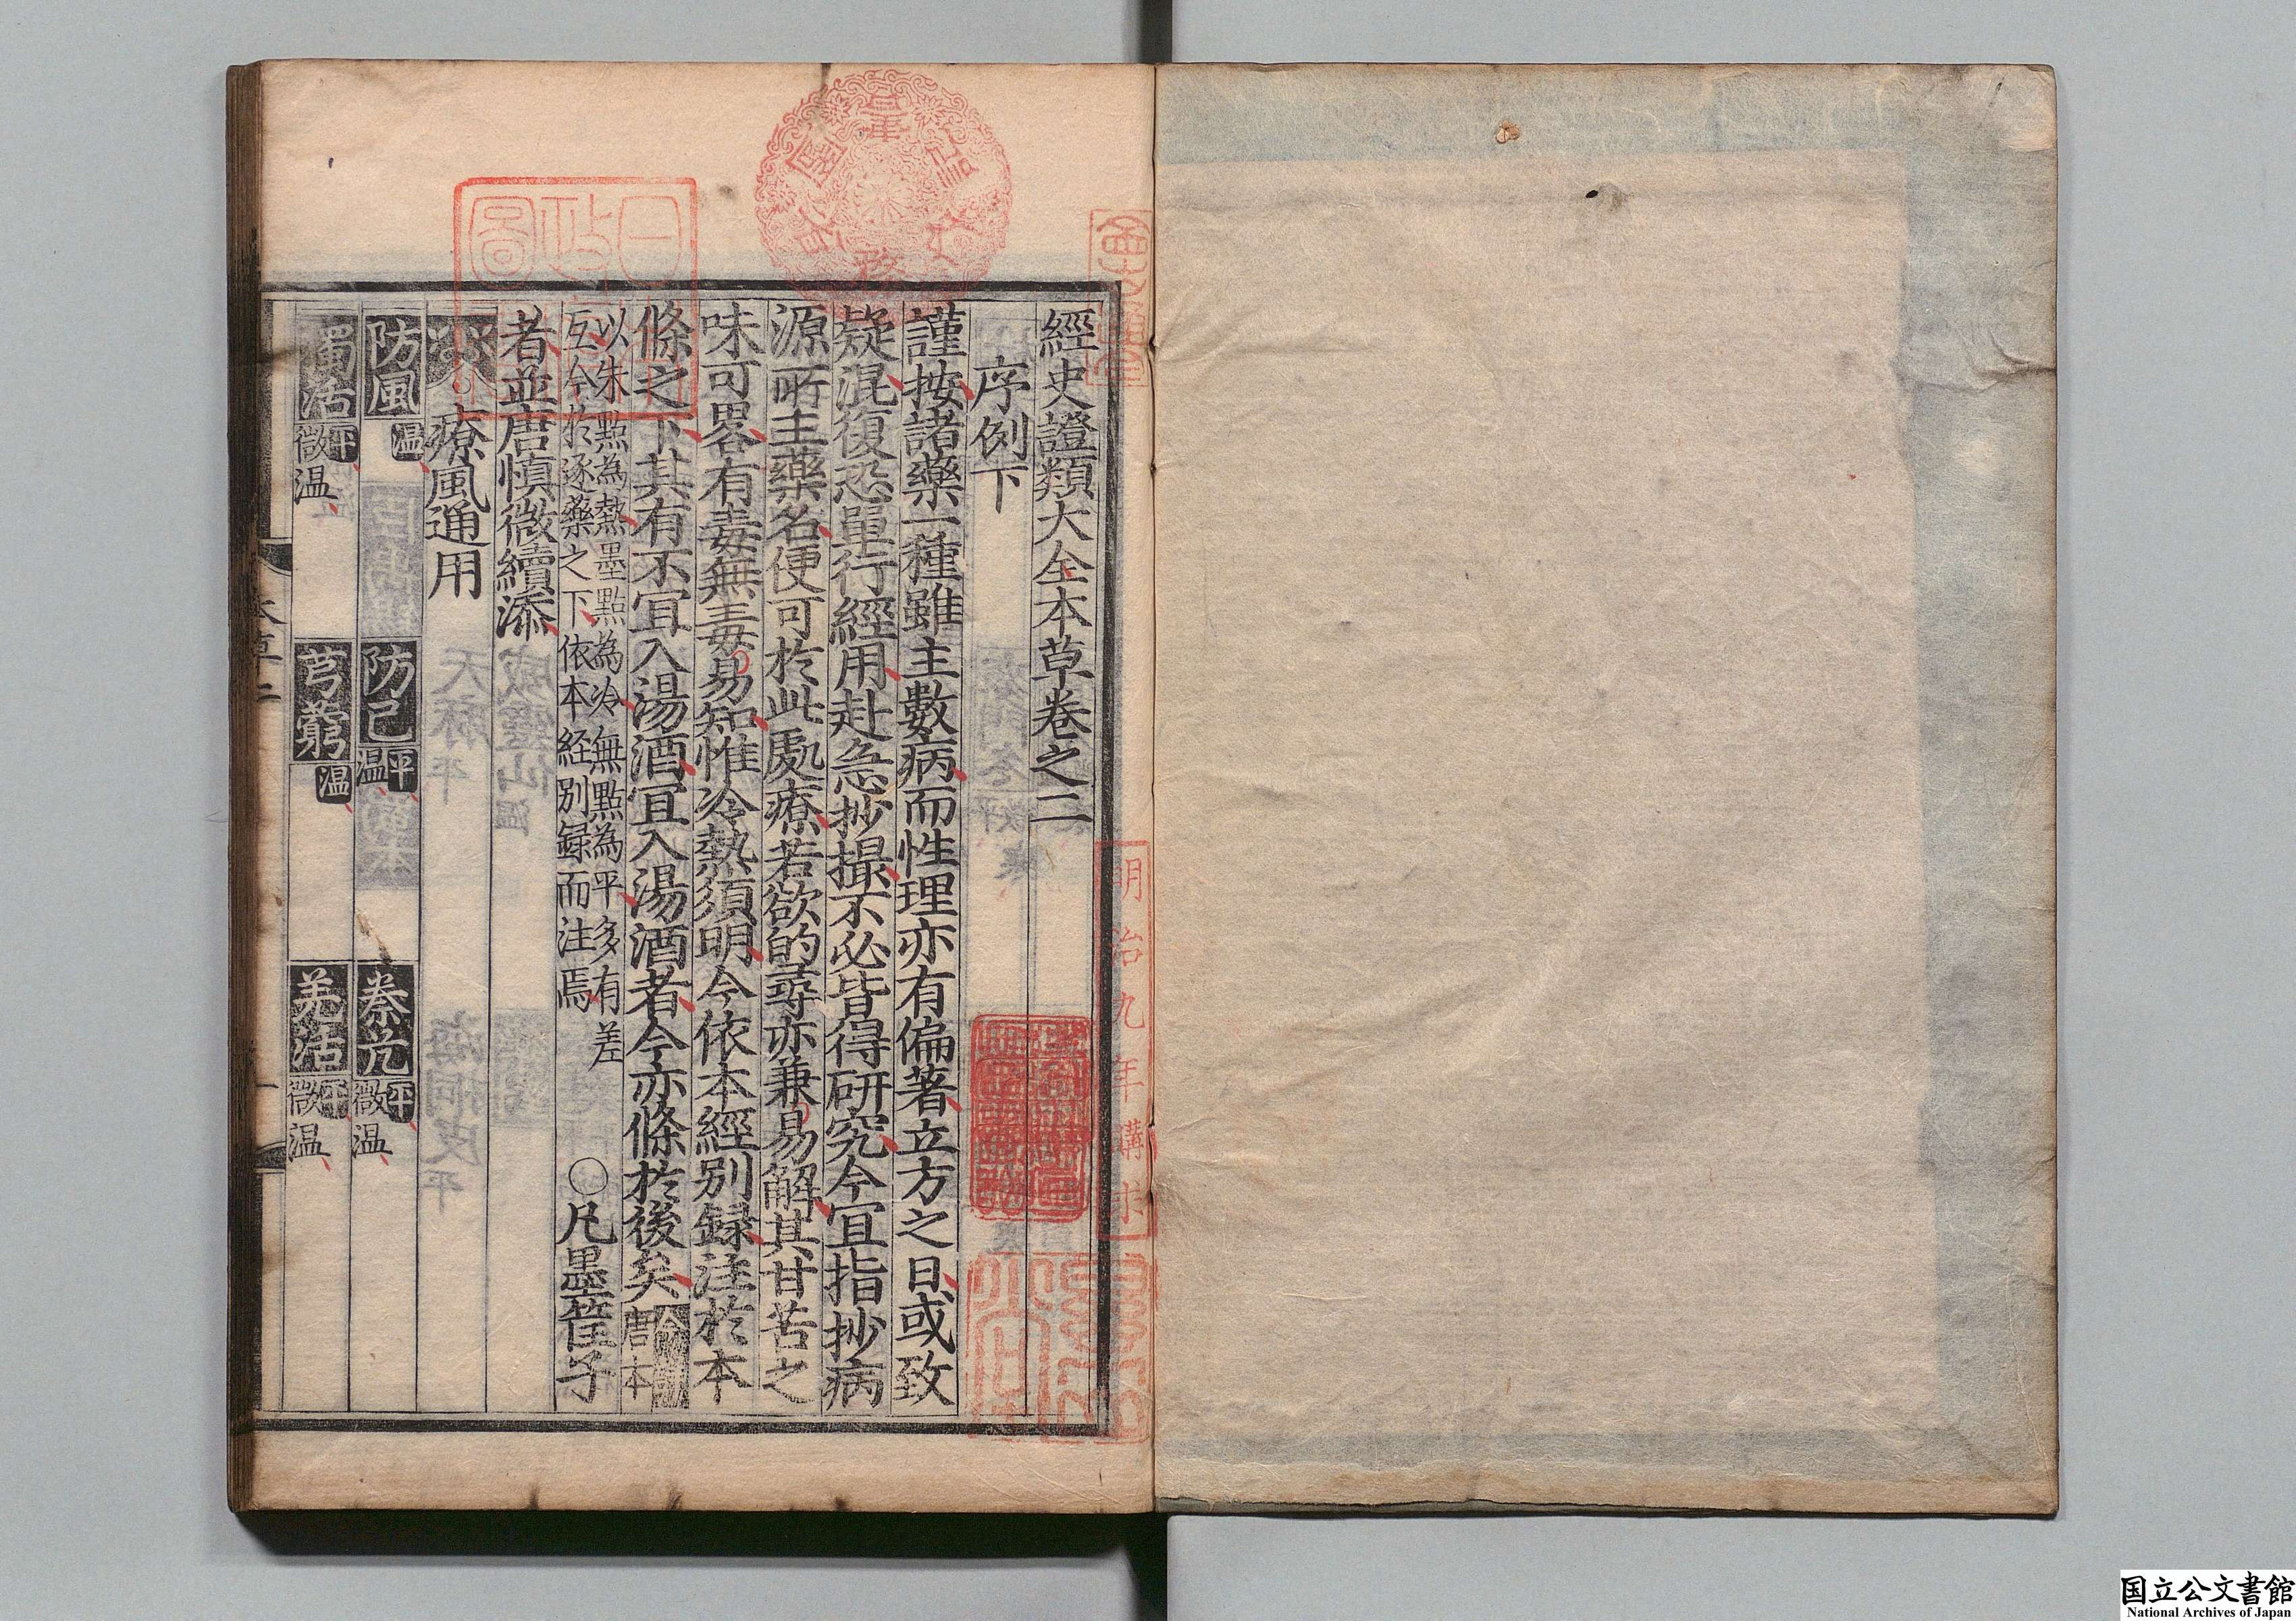 經史證類大全本草卷之二
序例下
謹按諸藥一種雖主數病而性理亦有偏著立方之日或致
疑混復恐單行經用赴急抄撮不必皆得研究今宜指抄病
源所主藥名便可於此處療若欲的尋亦兼易解其甘苦之
味可畧有毒無毒易知惟冷熱須明今依本經別録注於本
條之下其有不宜入湯酒宜入湯酒者今亦條於後矣
唐本
以朱點為熱墨點為冷無點為平多有差
互今於逐藥之下依本経別録而注焉
○凡墨筐子
者並唐慎微續添
療風通用
防風 温 防己 平 温 秦艽 平 微温
獨活 平 微温 芎藭 温 羌活 平 微温
本草二
一
明治九年購求
国立公文書館
National Archives of Japan